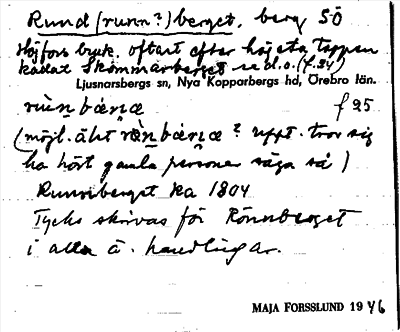 Rund (runn?) berget, berg SÖ
Högfors bruk. oftast efter högsta toppen
kallat Skommarberget se d.o. (f.34)
Ljusnarsbergs sn, Nya Kopparbergs hd, Örebro län.
f 95
(möjl. äht ? uppt. tror sig
ha hört gamla personer säga så)
Runneberget ka 1804
Tycks skrivas för Rönnberget
i alla ä. handlingar.
MAJA FORSSLUND 1946